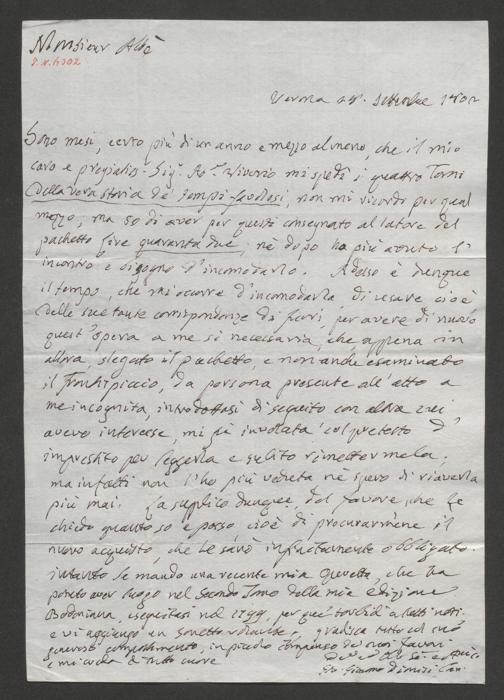 Monsieur Abè
Verona 1802
Sono mesi, certo più di un anno e mezzo almeno, che il mio
caro e mi spedì i quattro Tomi
Della vera storia de' tempi favolosi, non mi ricordo per qual
mezzo, ma so di aver per questi consegnato al latore del
pachetto lire quaranta due; nè dopo ha più avuto l'
incontro e bisogno d'incomodarlo. Adesso è dunque
il tempo, che mi occorre d'incomodarla, di usare cioè
delle sue tante corrispondenze di fuori, per avere di nuovo
quest'opera a me sì necessaria, che appena in
allora, slegato il pachetto, e non anche esaminato
il frontispiccio, da persona presente all'atto a
me incognita, introdottasi di seguito con altra cui
avevo interesse, mi fù involata col pretesto d'
imprestito per leggerla e subito rimettermela.
ma infatti non l'ho più veduta nè spero di riaverla
più mai. La suplico dunque del favore, che le
chiedo quanto so e posso cioè di procurarmene il
nuovo acquisto, che le sarò infinitamente obbligato.
intanto le mando una recente mia, che ha
potuto aver luogo nel Secondo Tomo della mia edizione
Bodoniana, eseguitasi nel 1799, per
e vi aggiungo un sonetto; gradisca tutto col suo
generoso compatimento, in picolo compenso de' suoi favori
e mi creda di tutto cuore
Giacomo Dionisi Can.